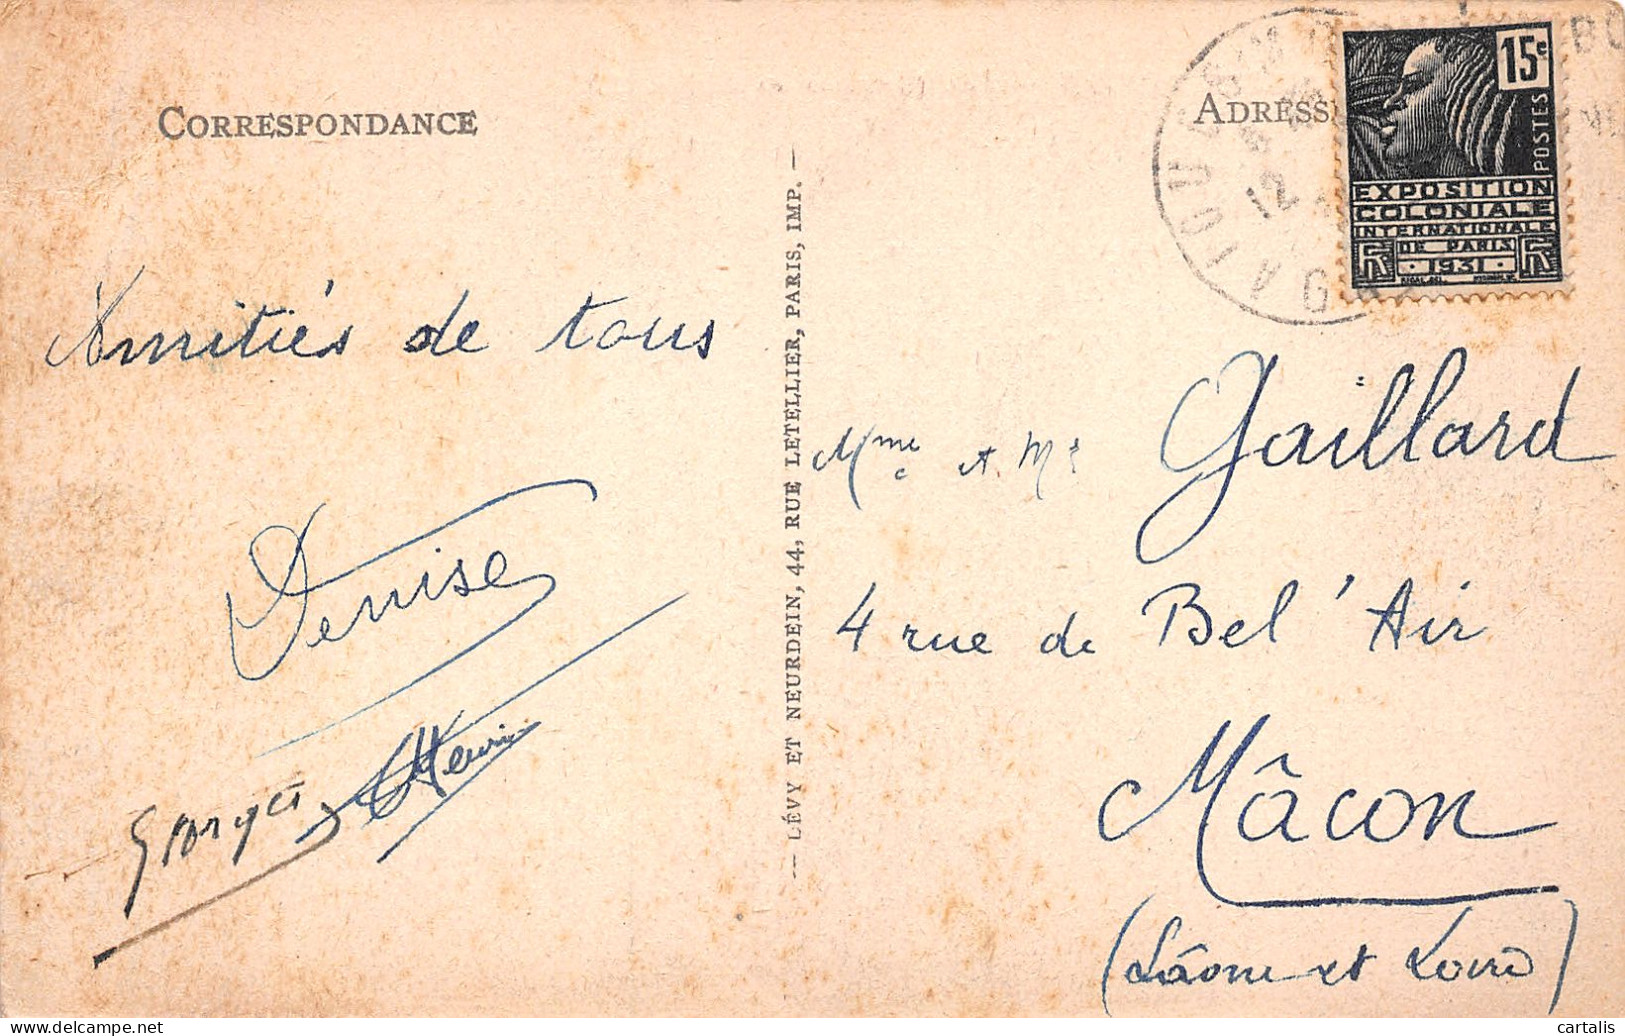 CORRESPONDANCE
Amitiés de tous
Denise
Georges Henri
— LÉVY ET NEURDEIN, 44, RUE LETELLIER, PARIS, IMP. —
ADRESS
15c
POSTES
EXPOSITION
COLONIALE
INTERNATIONALE
DE PARIS
RF · 1931 · RF
12
Mme et Mr Gaillard
4 rue de Bel'Air
Mâcon
(Sâone et Loire)
cartalis